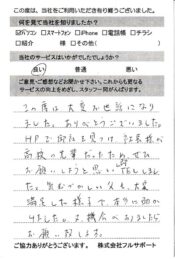 この度は、当社をご利用いただき有り難うございました。
何を見て当社を知りましたか?
☑パソコン □スマートフォン □iPhone □電話帳 □チラシ
□紹介 様 □その他( )
当社のサービスはいかがでしたでしょうか?
良い 普通 悪い
ご意見・ご感想などお聞かせ下さい。これからも更なる
サービスの向上をめざし、スタッフ一同がんばります。
この度は大変お世話になり
ました。ありがとうございました。
HPで御社を見つけ、社長様が
高校の先輩だったため、ぜひ
お願いしようと思い
ました。気むづかしい父も、大変
満足した様子で、本当に助か
りました。又、機会がありましたら
お願い致します。
ご協力ありがとうございます。 株式会社フルサポート